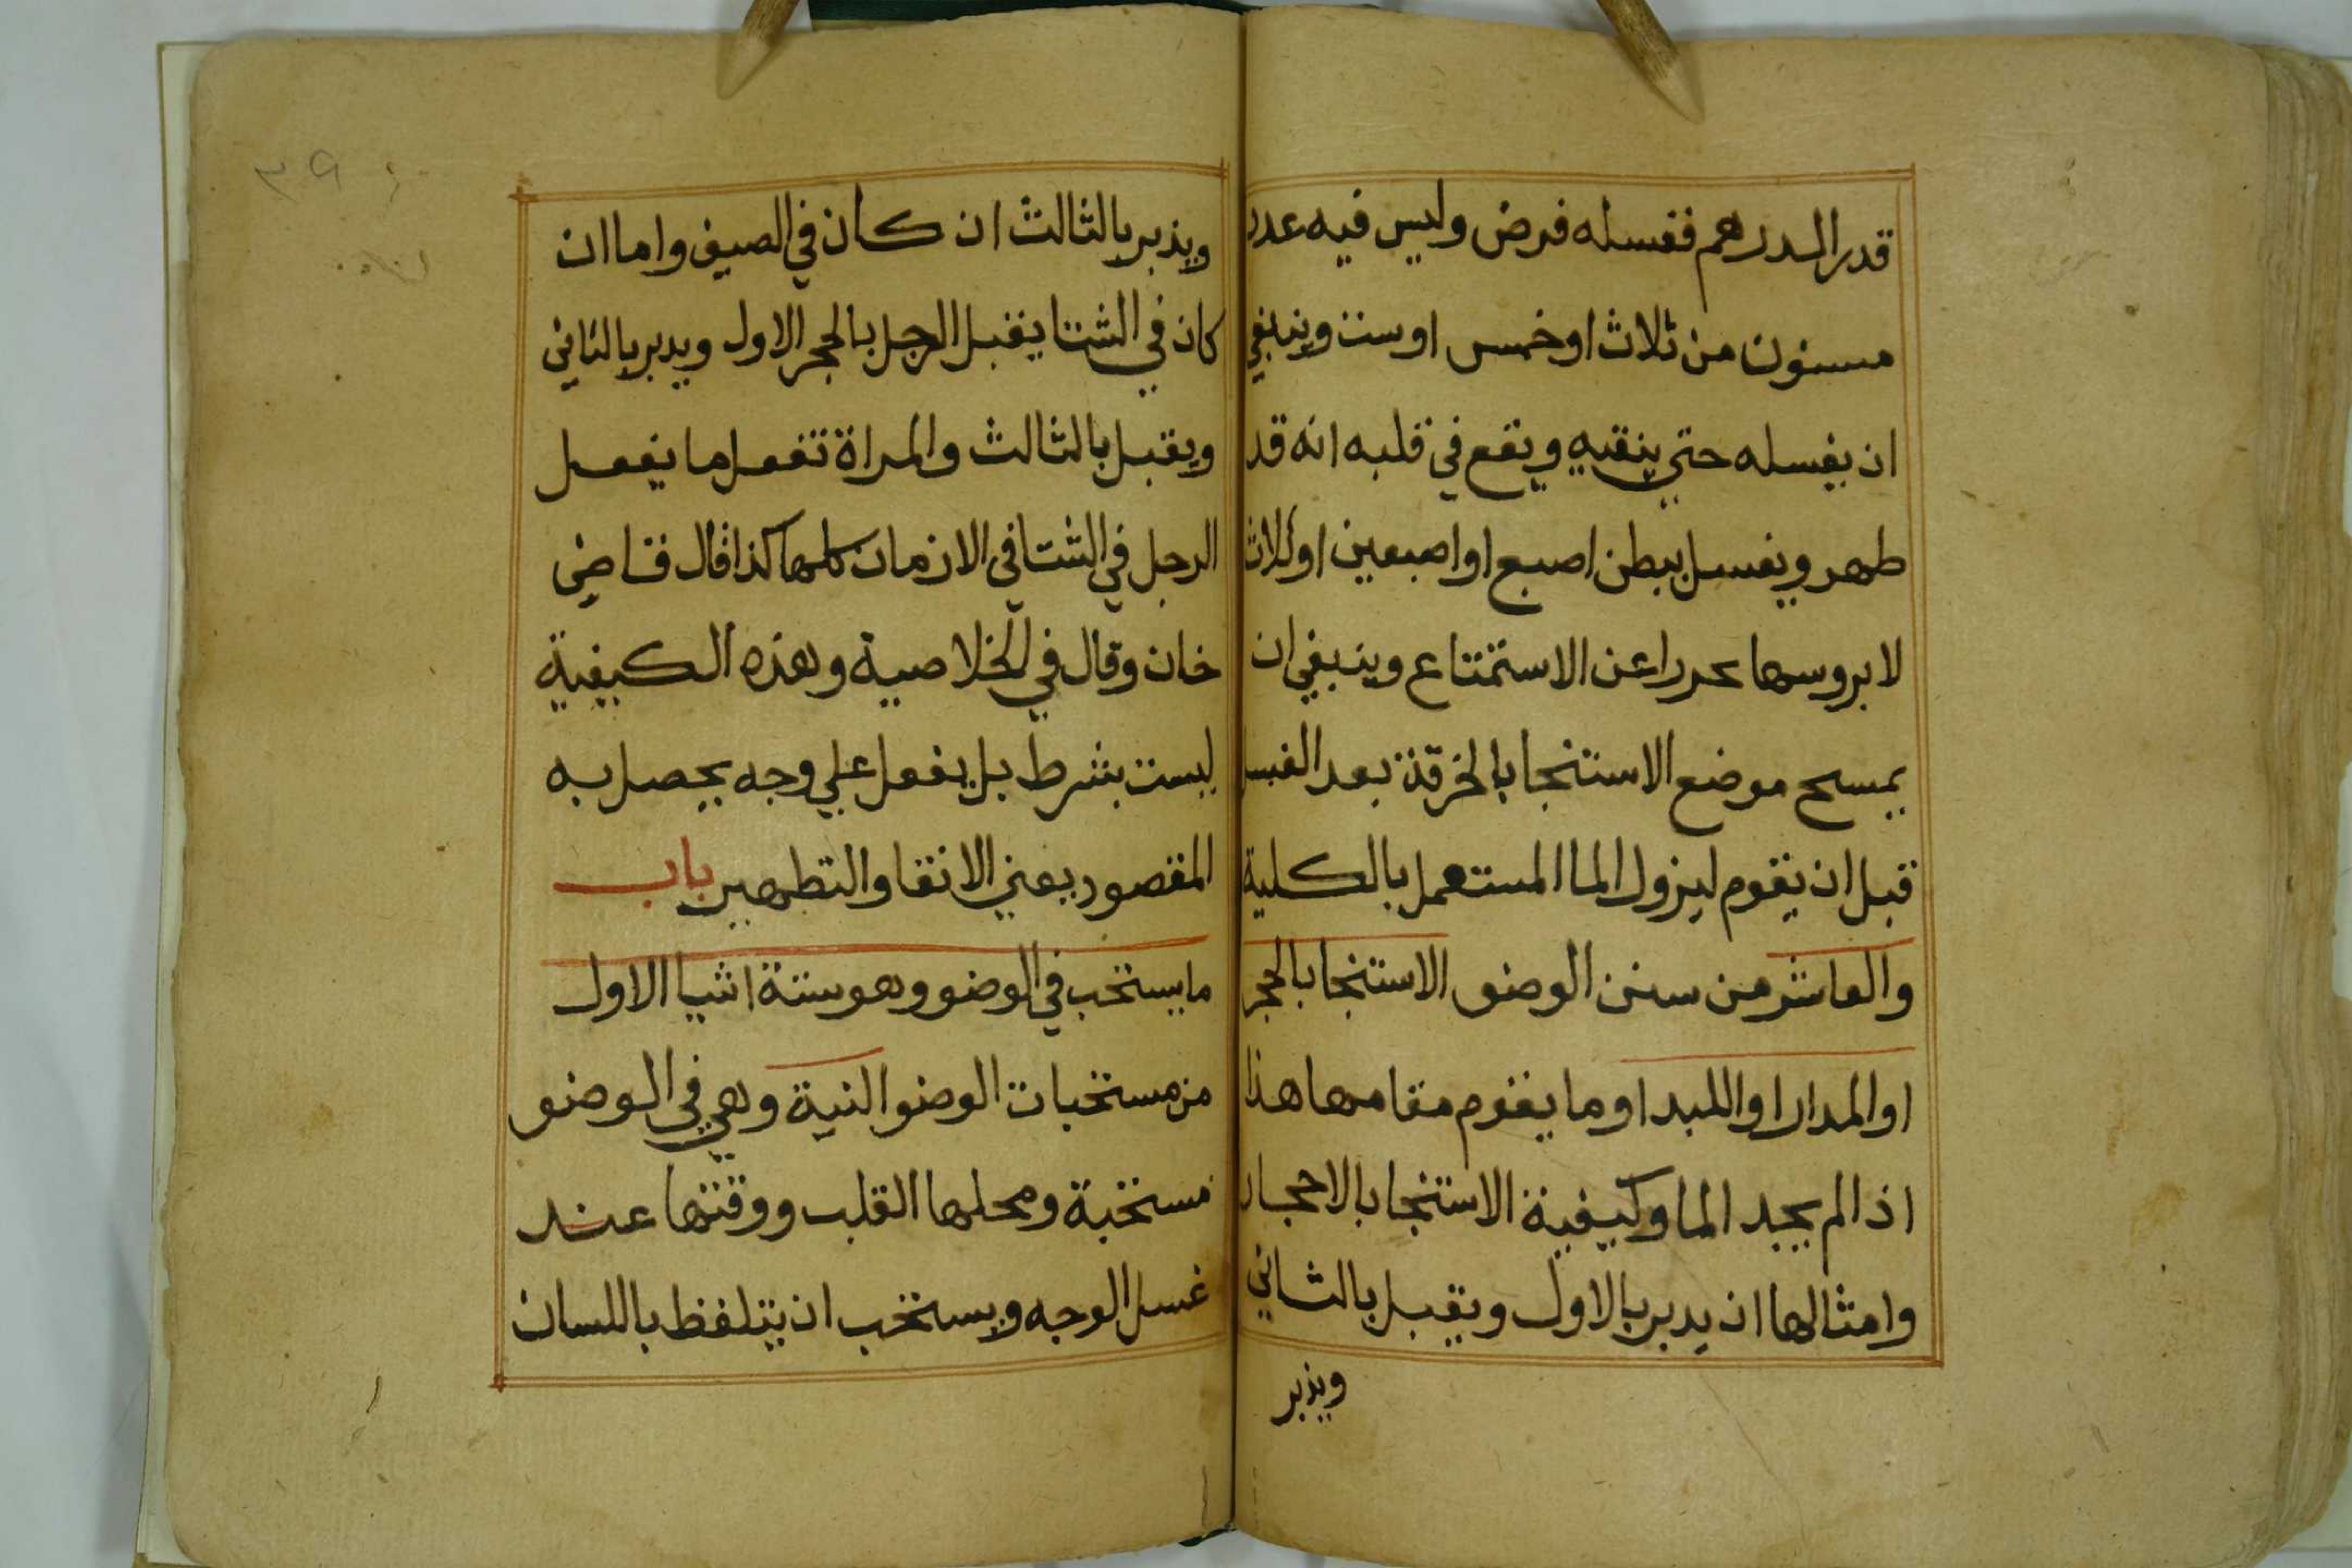 قدر الدرهم فغسله فرض وليس فيه عدد
مسنون من ثلاث او خمس او ست وينبغي
ان يغسله حتي ينقيه ويقع في قلبه انه قد
طهر ويغسل ببطن اصبع او اصبعين او ثلاث
لا بروسها تحررا عن الاستمتاع وينبغي ان
يمسح موضع الاستنجا بالخرقة بعد الغسل
قبل ان يقوم ليزول الما المستعمل بالكلية
والعاشر من سنن الوضو الاستنجا بالحجر
او المدار او اللبد او ما يقوم مقامها هذا
اذا لم يجد الما وكيفية الاستنجا بالاحجار
وامثالها ان يدبر بالاول ويقبل بالثاني
ويذبر
٣٩
ويذبر بالثالث ان كان في الصيف واما ان
كان في الشتا يقبل الرجل بالحجر الاول ويدبر بالثاني
ويقبل بالثالث والمراة تفعل ما يفعل
الرجل في الشتا في الازمان كلها كذا قال قاضي
خان وقال في الخلاصية وهذه الكيفية
ليست بشرط بل يفعل علي وجه يحصل به
المقصود يعني الانقا والتطهير باب
ما يستحب في الوضو وهو ستة اشيا الاول
من مستحبات الوضو النية وهي في الوضو
مستحبة ومحلها القلب ووقتها عند
غسل الوجه ويستحب ان يتلفظ باللسان